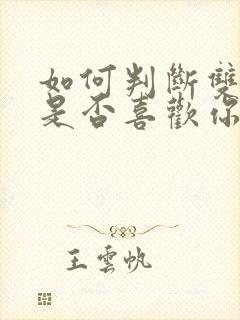 如何判斷雙
是否喜歡你
王雲帆